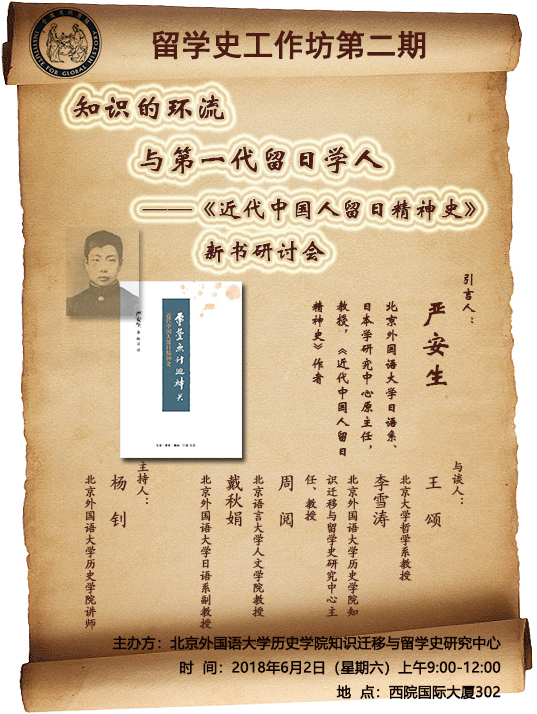 INSTITUTE FOR GLOBAL HISTORY
留学史工作坊第二期
知识的环流
与第一代留日学人
——《近代中国人留日精神史》
新书研讨会
引言人：
严安生
北京外国语大学日语系、
日本学研究中心原主任，
教授，《近代中国人留日
精神史》作者
严安生 著
灵台无计逃神矢
近代中国人留日精神史
与谈人：
王颂
北京大学哲学系教授
李雪涛
北京外国语大学历史学院知
识迁移与留学史研究中心主
任、教授
周阅
北京语言大学人文学院教授
戴秋娟
北京外国语大学日语系副教授
主持人：
杨钊
北京外国语大学历史学院讲师
主办方：北京外国语大学历史学院知识迁移与留学史研究中心
时 间：2018年6月2日（星期六）上午9:00-12:00
地 点：西院国际大厦302